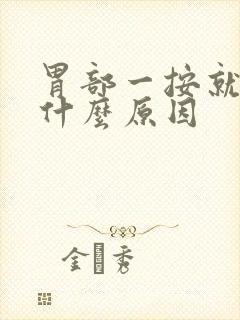 胃部一按就
什麼原因
金秀